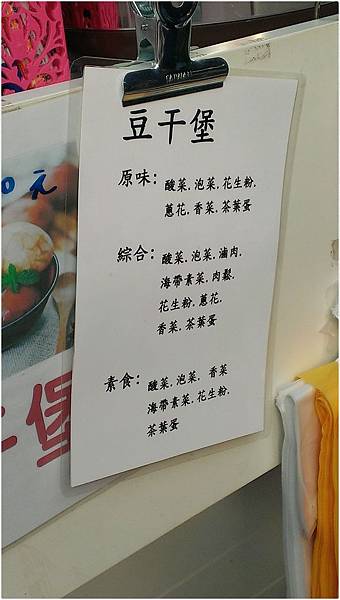 豆干堡
原味：酸菜.泡菜.花生粉.
蔥花.香菜.茶葉蛋
綜合：酸菜.泡菜.滷肉.
海帶素菜.肉鬆.
花生粉.蔥花.
香菜.茶葉蛋
素食：酸菜.泡菜. 香菜
海帶素菜.花生粉.
茶葉蛋
0元
堡